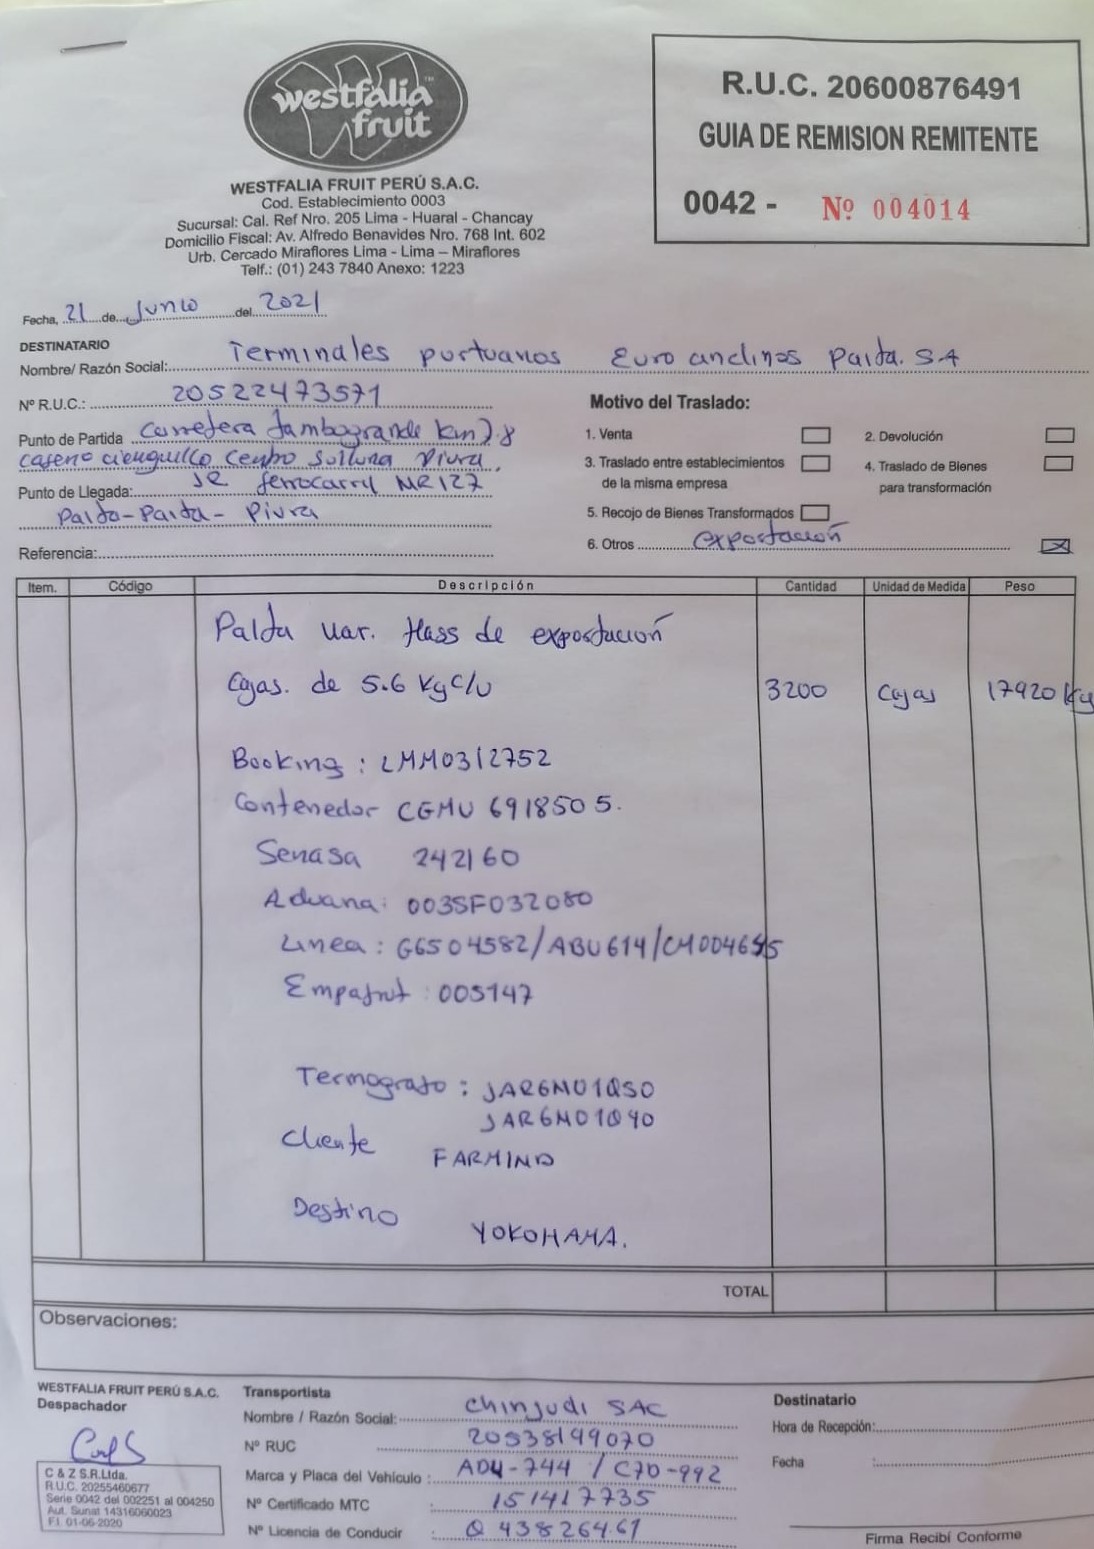 westfalia™
fruit
WESTFALIA FRUIT PERÚ S.A.C.
Cod. Establecimiento 0003
Sucursal: Cal. Ref Nro. 205 Lima - Huaral - Chancay
Domicilio Fiscal: Av. Alfredo Benavides Nro. 768 Int. 602
Urb. Cercado Miraflores Lima - Lima – Miraflores
Telf.: (01) 243 7840 Anexo: 1223
R.U.C. 20600876491
GUIA DE REMISION REMITENTE
0042 - Nº 004014
Fecha, 21 de Junio del 2021
DESTINATARIO
Nombre/ Razón Social: Terminales portuarios Euro andinos Paita. S.A
Nº R.U.C.: 20522473571
Punto de Partida Carretera Tambogrande Km 7.8
caserio cieneguillo Centro Sullana Piura.
Punto de Llegada: Jr ferrocarril NR 127
Paita-Paita- Piura
Referencia:
Motivo del Traslado:
1. Venta
2. Devolución
3. Traslado entre establecimientos
de la misma empresa
4. Traslado de Bienes
para transformación
5. Recojo de Bienes Transformados
6. Otros exportación X
Item. Código Descripción Cantidad Unidad de Medida Peso
Palta var. Hass de exportación
Cajas. de 5.6 Kg c/u 3200 Cajas 17920 Kg
Booking : LMM0312752
Contenedor CGMU 691850 5.
Senasa 242160
Aduana: 003SF032080
Linea : G6504582/ABU614/CM004655
Empafrut : 005147
Termografo : JAR6M01QS0
JAR6M01QY0
Cliente FARMIND
Destino YOKOHAMA.
TOTAL
Observaciones:
WESTFALIA FRUIT PERÚ S.A.C.
Despachador
C & Z S.R.Ltda.
R.U.C. 20255460677
Serie 0042 del 002251 al 004250
Aut. Sunat 14316060023
F.I. 01-06-2020
Transportista
Nombre / Razón Social: Chinjudi SAC
Nº RUC 20538199070
Marca y Placa del Vehículo : ADU-744 / C7D-992
Nº Certificado MTC : 151417735
Nº Licencia de Conducir : Q 43826461
Destinatario
Hora de Recepción:
Fecha :
Firma Recibí Conforme